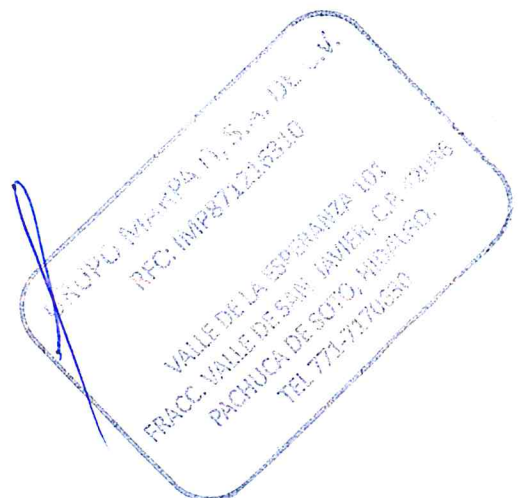 GRUPO S.A. DE C.V.
RFC: IMP871216310
VALLE DE LA ESPERANZA 101
FRACC. VALLE DE SAN JAVIER, C.P.
PACHUCA DE SOTO, HIDALGO.
TEL 771-